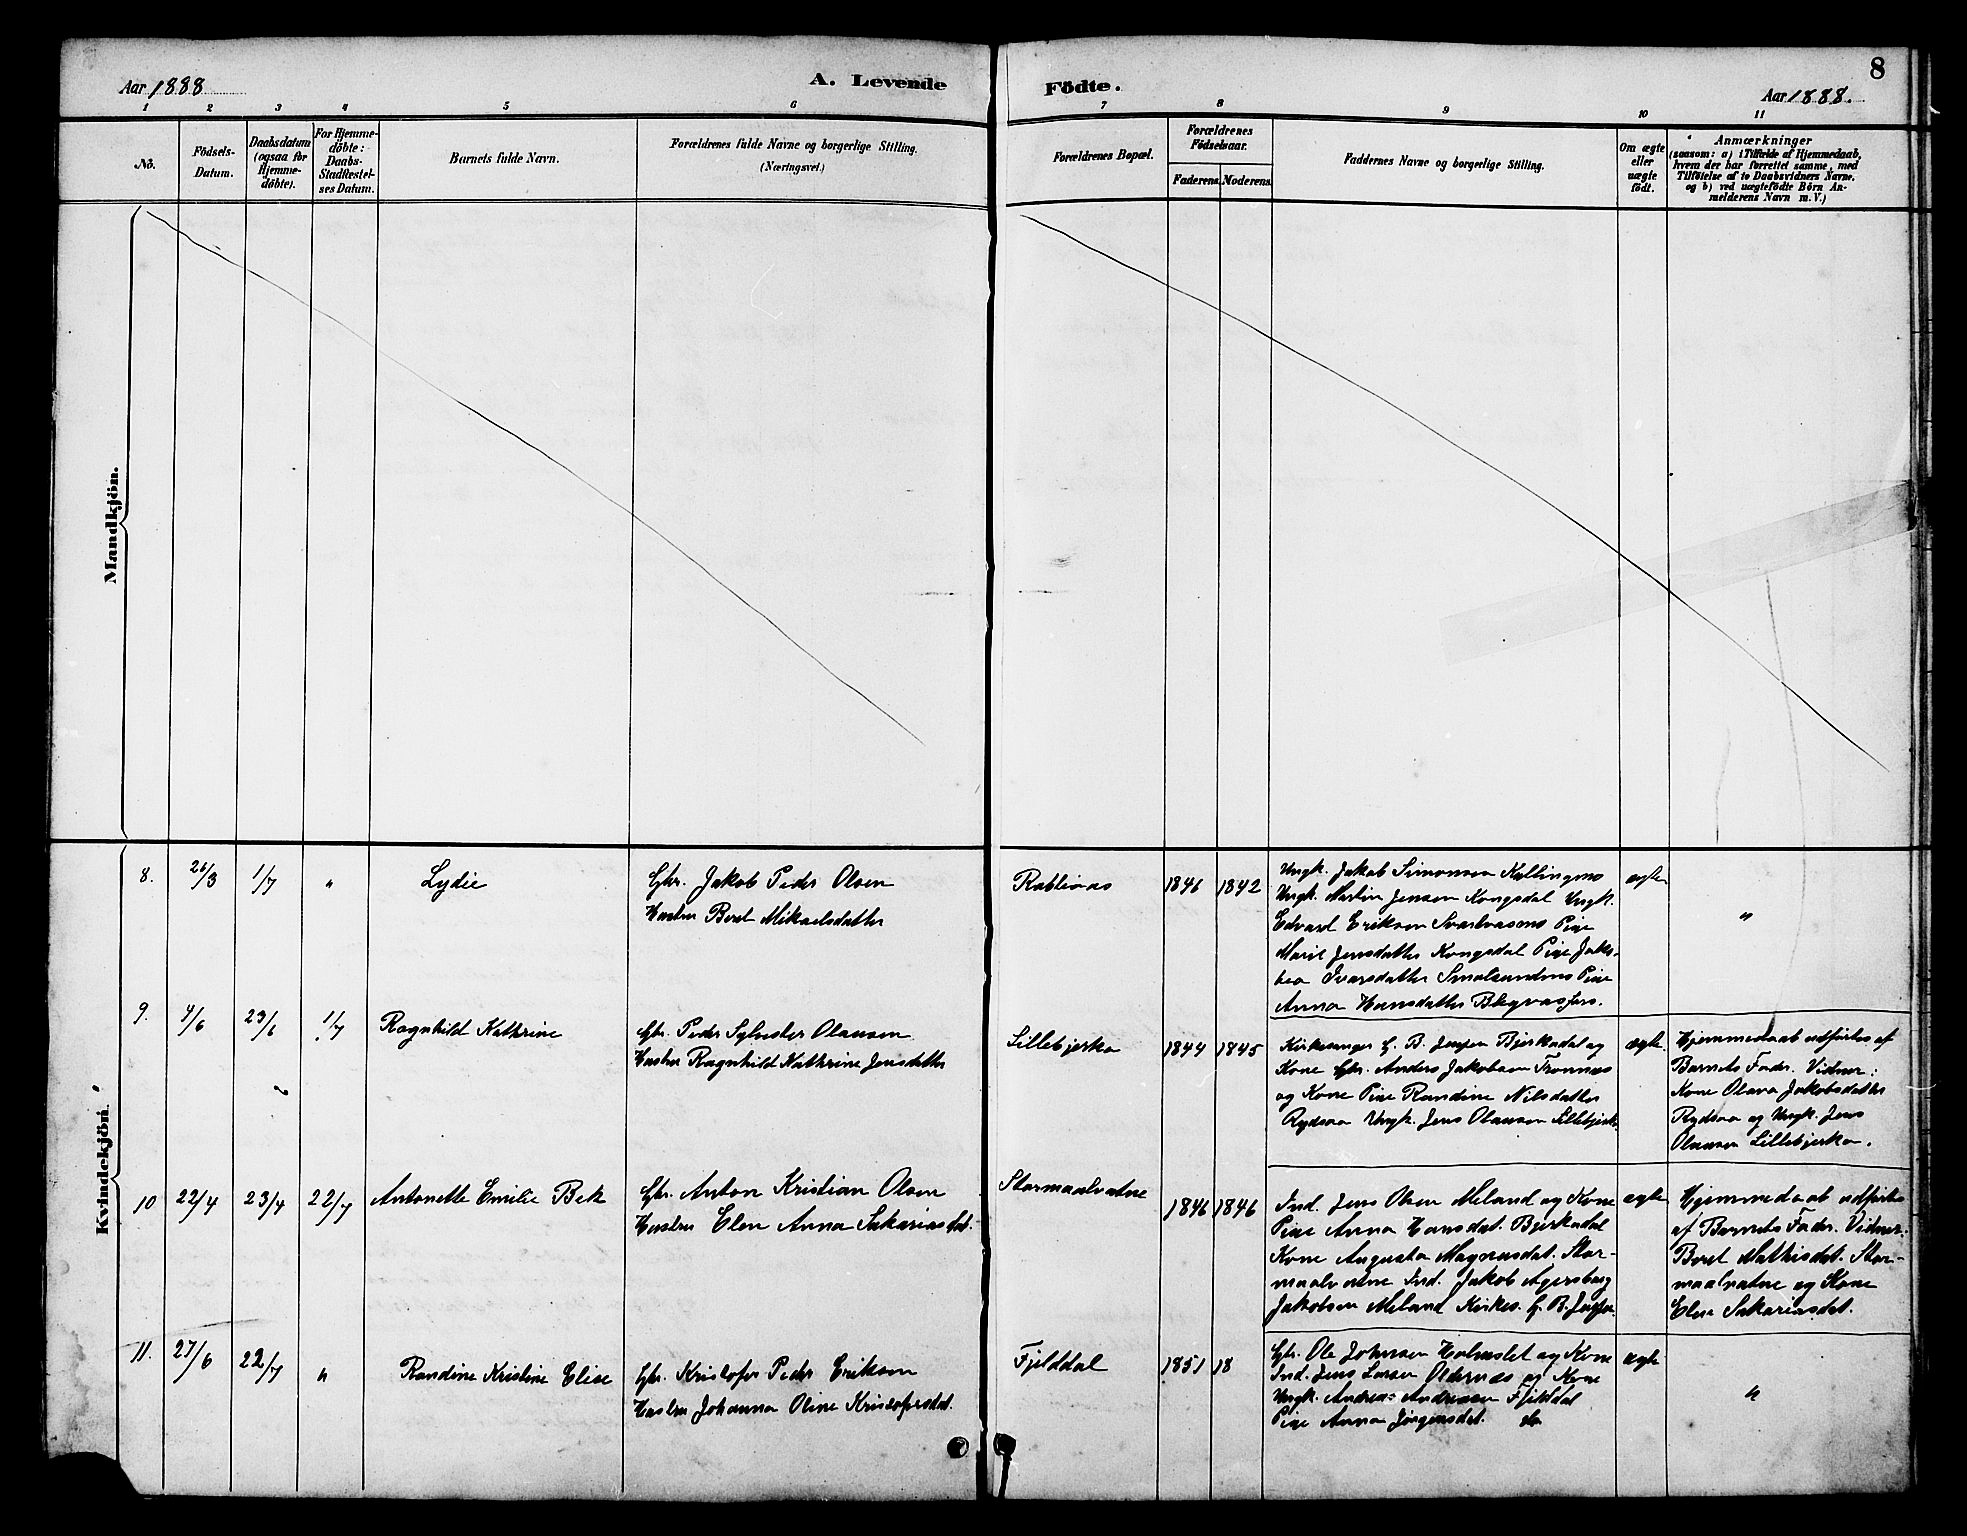 8
Aar 1888
A. Levende
Födte.
Aar 1888.
1 2 3 4 5 6 7 8 9 10 11
No.
Födsels-
Datum.
Daabsdatum
(ogsaa for
Hjemme-
døbte).
For Hjemme-
døbte:
Daabs-
Stadfæstel-
ses Datum.
Barnets fulde Navn.
Forældrenes fulde Navne og borgerlige Stilling.
(Næringsvei.)
Forældrenes Bopæl.
Forældrenes
Födselsaar.
Faderens. Moderens.
Faddernes Navne og borgerlige Stilling.
Om ægte
eller
uægte
født.
Anmærkninger
(saasom: a) i Tilfælde af Hjemmedaab,
hvem der har forrettet samme, med
Tilföielse af to Daabsvidners Navne.
og b) ved uægtefödte Börn An-
melderens Navn m. V.)
Mandkjön.
Kvindekjön.
8.
26/3
1/7
"
Lydie
Gbr. Jakob Peder Olsen
Hustru Beret Mikaelsdatter
1846 1842
Ungk. Jakob Simonsen
Ungk. Martin Jensen Kongsdal Ungk.
Edvard Eriksen Pige
Marie Jensdatter Kongsdal Pige Jako-
bea Ivarsdatter Smalsundmo Pige
Anna Hansdatter
ægte
"
9.
4/6
23/6
1/7
Ragnhild Kathrine
Gbr. Peder Sylvester Olausen
Hustru Ragnhild Kathrine Jensdatter
Lillebjerka
1844 1845
Kirkesanger G. B. Jensen Bjerkadal og
Kone Gbr. Anders Jakobsen Fronnæs
og Kone Pige Randine Nilsdatter
Rydsaa Ungk. Jens Olausen Lillebjerk.
ægte
Hjemmedaab udførtes af
Barnets Fader. Vidner:
Kone Olava Jakobsdatter
Rydsaa og Ungk. Jens
Olausen Lillebjerka.
10
22/4
23/4
22/7
Antonette Emilie Bek
Gbr. Anton Kristian Olsen
Hustru Elen Anna Sakariasdat.
Stormaalvatne
1846 1846
Ind. Jens Olsen Meland og Kone
Pige Anna Hansdat. Bjerkadal
Kone Augusta Magnusdat. Stor-
maalvatne Ind. Jakob Agersborg
Jakobsen Meland Kirkes. G. B. Jensen
ægte
Hjemmedaab udførtes
af Barnets Fader. Vidner:
Beret Mathisdat. Stor-
maalvatne og Kone
Elen Sakariasdat.
11.
27/6
22/7
"
Randine Kristine Elise
Gbr. Kristofer Peder Eriksen
Hustru Johanna Oline Kristofersdat.
Fjelddal
1851 18
Gbr. Ole Johnsen Holmslet og Kone
Ind. Jens Larsen Oldernæs og Kone
Ungk. Andreas Andreasen Fjelddal
Pige Anna Jörgensdat. do
ægte
"